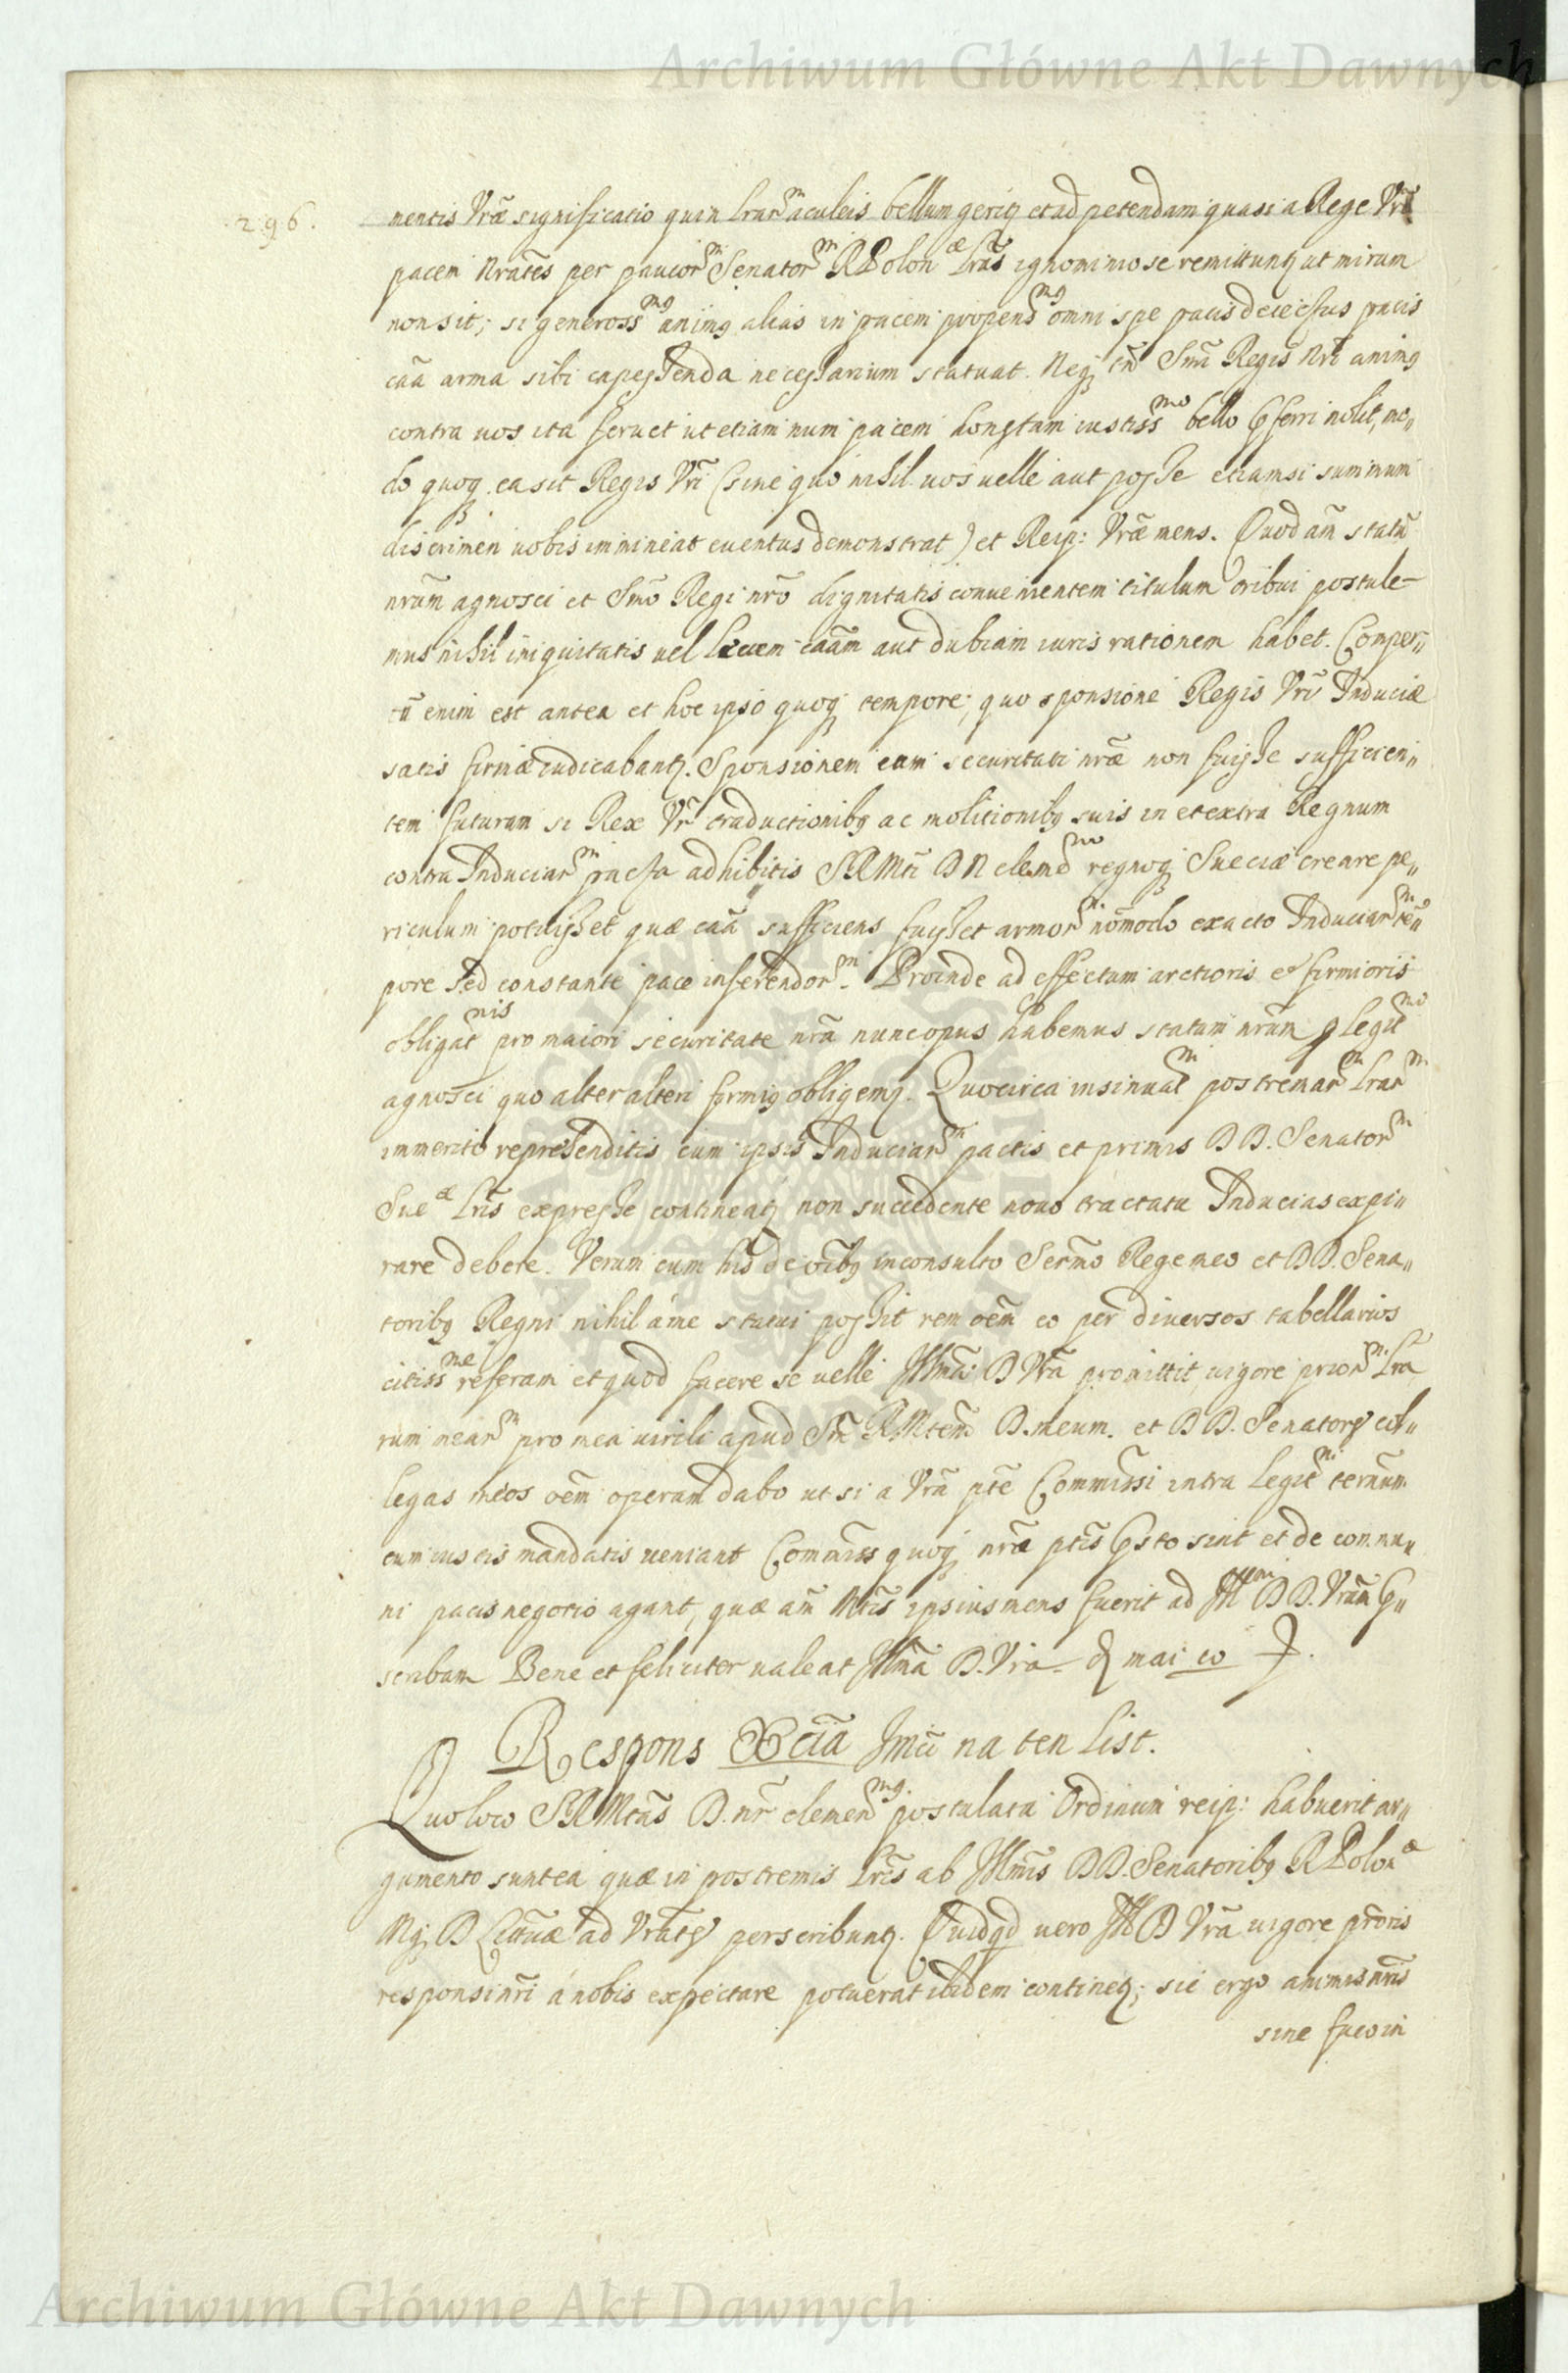 Archiwum Główne Akt Dawnych
296.
mentis Vrã significatio quin lrar͂ᵐ aculeis bellum geritꝫ et ad petendam quasi a Rege Vrõ
pacem Nrãtes per paucor͂ᵐ Senator͂ᵐ R Polonᵃᵉ Lrãs ignominiose remittuntꝫ ut mirum
non sit; si generossᵐ⁹ animꝯ alias in pacem propensᵐ⁹ omni spe pacis deiectus pacis
cãã arma sibi capessenda necessarium statuat. Neqꝫ tñ Smĩ Regis Nrĩ animꝯ
contra uos ita feruet ut etiam num pacem honestam iustissᵐᵒ bello pferri nolit, mo„
do quoqꝫ ea sit Regis Vrĩ (sine quo nihil uos uelle aut posse etiamsi summum
discrimen uobis immineat euentus demonstrat) et Reip: Vrã mens. Quod añ statũ
nrũm agnosci et Smõ Regi nrõ dignitatis conuenientem titulum tribui postule=
mus nihil iniquitatis uel leuem cããm aut dubiam iuris rationem habet. Comper„
tũ enim est antea et hoc ipso quoqꝫ tempore, quo sponsione Regis Vrĩ Induciæ
satis firmæ iudicabantꝫ. Sponsionem eam securitati nrãe non fuisse sufficien„
tem futuram si Rex Vr̃ traductionibꝯ ac molitionibꝯ suis in et extra Regnum
contra Induciar͂ᵐ pacta adhibitis SRMti DN clemeᵐᵒ regnoqꝫ Sueciæ creare pe„
riculum potuisset quæ cãã sufficiens fuisset armor͂ᵐ nõmodo exacto Induciar͂ᵐ tem„
pore sed constante pace inferendor͂ᵐ. Proinde ad effectum arctioris et firmioris
obligatⁿⁱˢ pro maiori securitate nrã nunc opus habemus statum nrũm ꝓ legitᵐᵒ
agnosci quo alter alteri firmiꝯ obligemꝯ. Quocirca insinuatᵐ postremar͂ᵐ Lrar͂ᵐ
immerito reprehenditis cum ipsis Induciar͂ᵐ pactis et primis DD. Senator͂ᵐ
Sueᵃᵉ Lrĩs expresse contineatꝫ non succedente nouo tractatu Inducias expi„
rare debere. Verum cum his de oĩbꝯ inconsulto Sermõ Rege meo et DD. Sena„
toribꝯ Regni nihil á me statui possit rem oẽm eo per diuersos tabellarios
citissᵐᵉ referam et quod facere se uelle Illmã D Vrã promittit, uigore prior͂ᵐ Lra
rum mear͂ᵐ pro mea uirili apud Sm̃ R.Mtem D. meum. et DD. Senatores col„
legas meos oẽm operam dabo ut si a Vrã ptẽ Commissi intra Legitᵐⁱ termũm
cum iustis mandatis ueniant Commiss quoqꝫ nrãe ptĩs psto sint et de commu„
ni pacis negotio agant, quæ añ Mtĩs ipsius mens fuerit ad Illᵐᵃᵐ DD. Vrãm p„
scribam Bene et feliciter ualeat Illmã D. Vra
Respons Xcĩã Jmcĩ na ten List.
Quo loco SRMtas D. nr̃ clemenᵐ⁹. postulata Ordinum reip: habuerit ar„
gumento sunt ea quæ in postremis Lrĩs ab Illmĩs DD. Senatoribꝯ R Polonᵃᵉ
Mgꝫ D Lituãæ ad Vrãtes perscribuntꝫ. Quidqd uero Ill D Vrã uigore prõris
responsi nrĩ á nobis expectare potuerat ibidem continetꝫ; sic ergo animis nrĩs
sine fuco in
Archiwum Główne Akt Dawnych